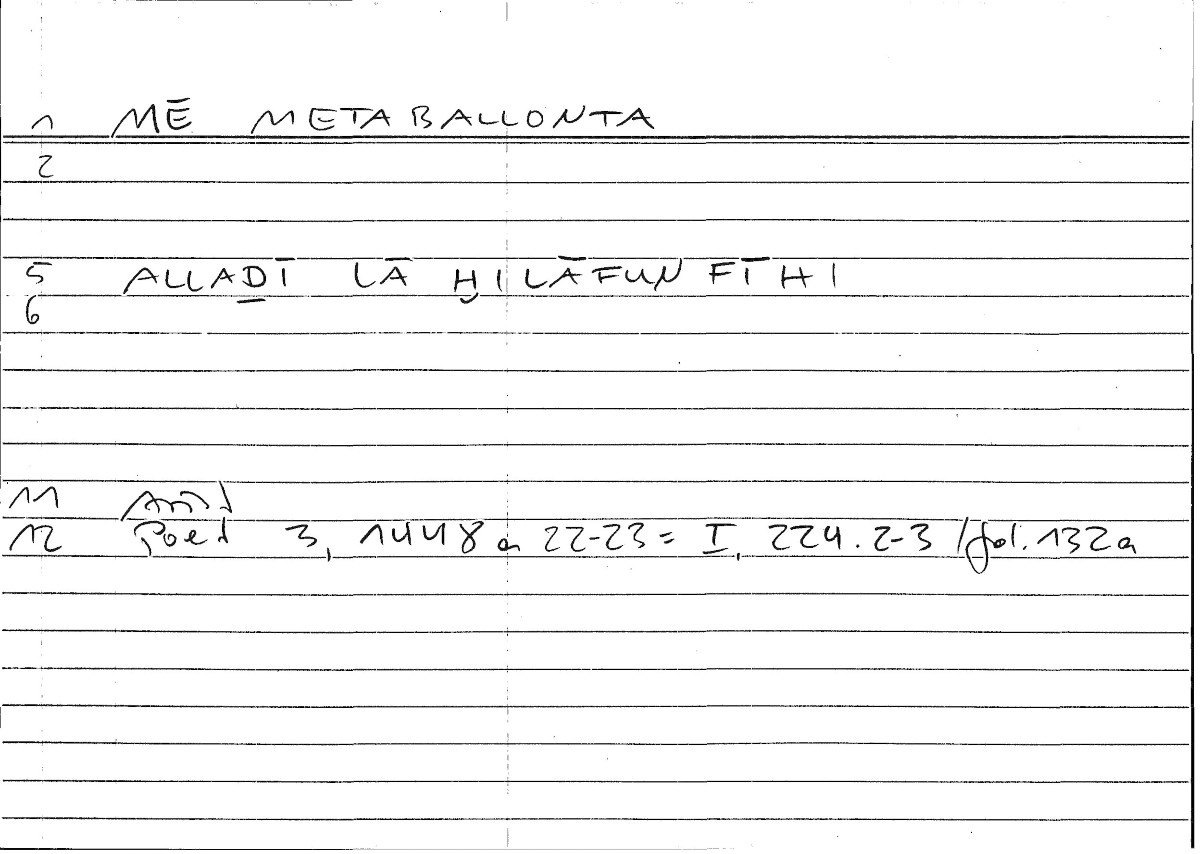 1 MĒ METABALLONTA
2
5 ALLAḎĪ LĀ ḪILĀFUN FĪHI
6
11 Arist
12 Poet 3, 1448 a 22-23 = I, 224.2-3 / fol. 132a